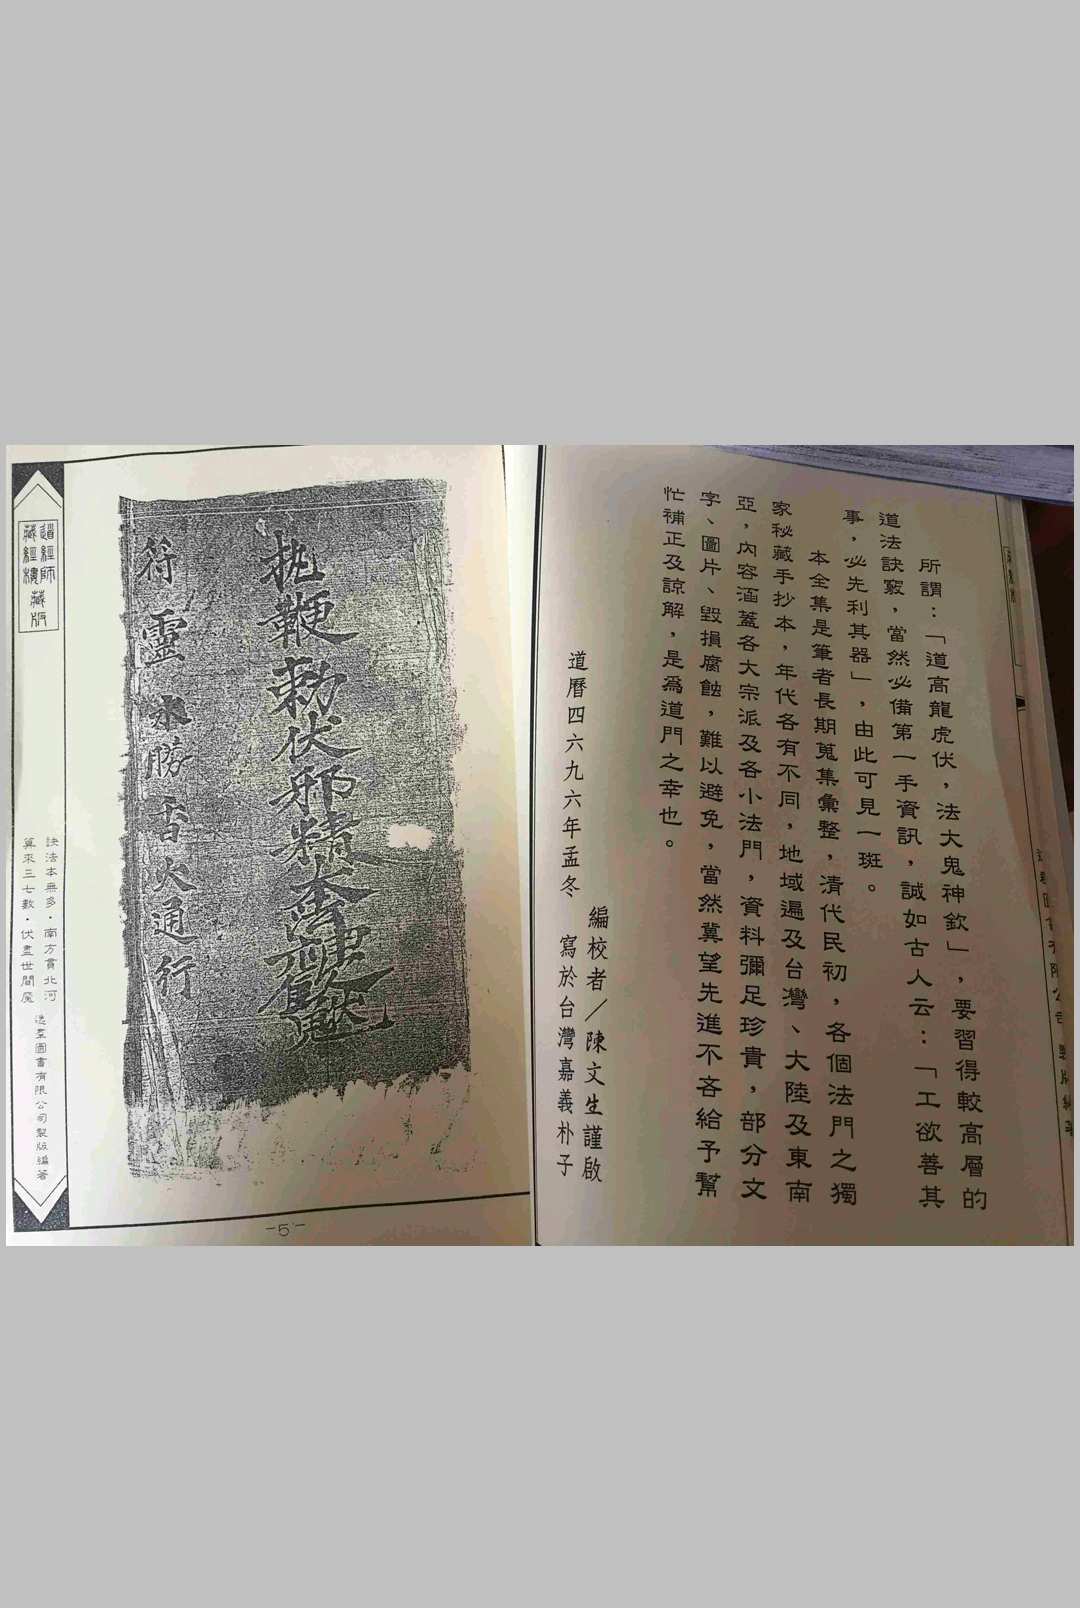 所謂：「道高龍虎伏，法大鬼神欽」，要習得較高層的
道法訣竅，當然必備第一手資訊，誠如古人云：「工欲善其
事，必先利其器」，由此可見一班。
本全集是筆者長期蒐集彙整，清代民初，各個法門之獨
家秘藏手抄本，年代各有不同，地域遍及台灣、大陸及東南
亞，內容涵蓋各大宗派及各小法門，資料彌足珍貴，部分文
字、圖片、毀損腐蝕，難以避免，當然冀望先進不吝給予幫
忙補正及諒解，是為道門之幸也。
編校者／陳文生謹啟
道曆四六九六年孟冬 寫於台灣嘉義朴子
執鞭勅伏邪精
符靈水勝香火通行
道經師
藏經樓藏版
訣法本無多·南方貫北河
算來三七數·伏盡世間魔
逸羣圖書有限公司製版編著
-5-